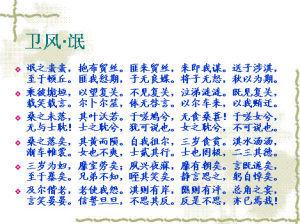 卫风·氓
氓之蚩蚩，抱布贸丝。匪来贸丝，来即我谋。送子涉淇，
至于顿丘。匪我愆期，子无良媒。将子无怒，秋以为期。
乘彼垝垣，以望复关。不见复关，泣涕涟涟。既见复关，
载笑载言。尔卜尔筮，体无咎言。以尔车来，以我贿迁。
桑之未落，其叶沃若。于嗟鸠兮，无食桑葚！于嗟女兮，
无与士耽！士之耽兮，犹可说也。女之耽兮，不可说也。
桑之落矣，其黄而陨。自我徂尔，三岁食贫。淇水汤汤，
渐车帷裳。女也不爽，士贰其行。士也罔极，二三其德。
三岁为妇，靡室劳矣；夙兴夜寐，靡有朝矣。言既遂矣，
至于暴矣。兄弟不知，咥其笑矣。静言思之，躬自悼矣。
及尔偕老，老使我怨。淇则有岸，隰则有泮。总角之宴，
言笑晏晏。信誓旦旦，不思其反。反是不思，亦已焉哉！